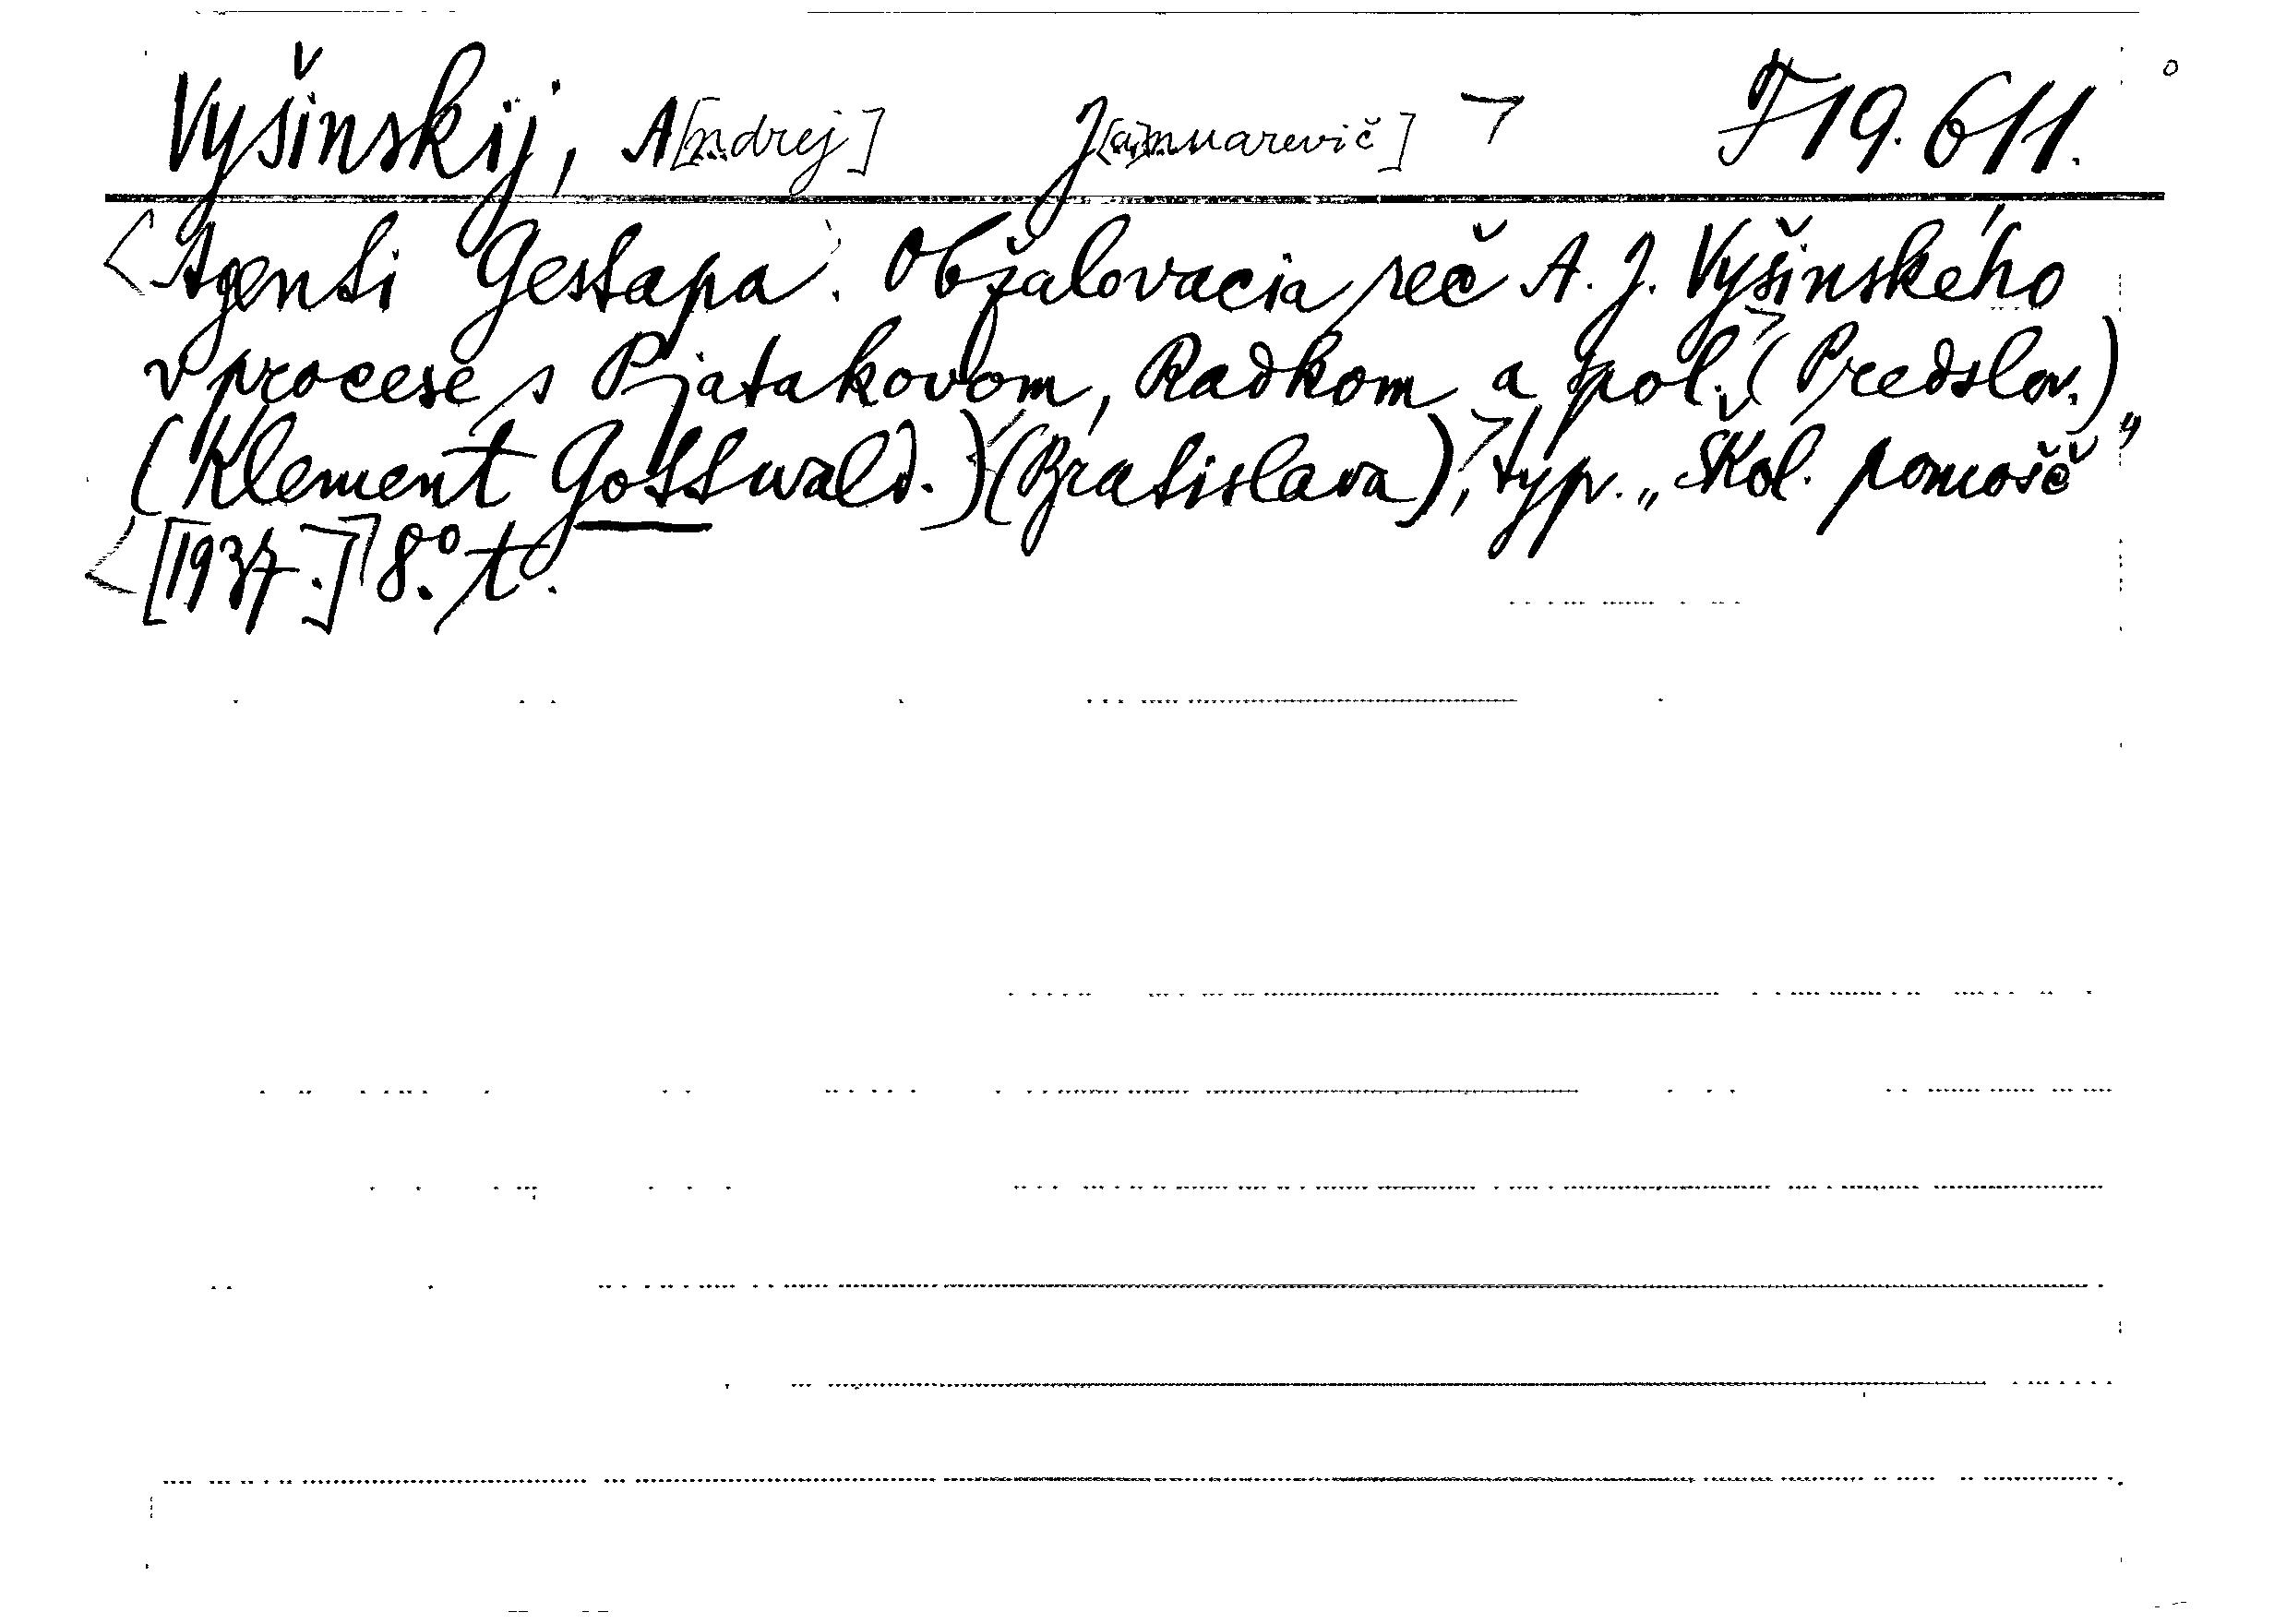 Vyšinskij, A[ndrej] J[a]nuarevič] F 19.611.
Agenti Gestapa. Obžalovacia reč A. J. Vyšinského
v procese s Pjatakovom, Radkom a spol. (Predslov.)
(Klement Gottwald.) (Bratislava), typ. „Škol. pomoše"
[1937.] 8.° t.